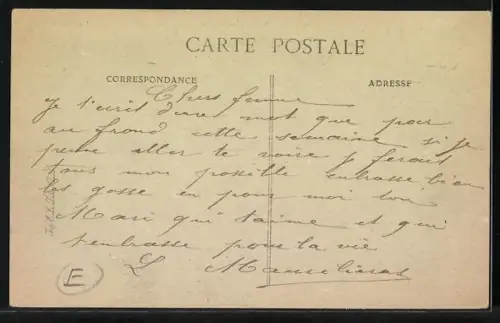 CARTE POSTALE
CORRESPONDANCE
ADRESSE
Chers femme
Je t'ecrit d'une mot que pour
au frond cette semaine si je
peux aller te voire je ferais
tous mon possible enbrasse bien
les gosse en pour moi ton
Mari qui t'aime et qui
t'enbrasse pour la vie
L
E